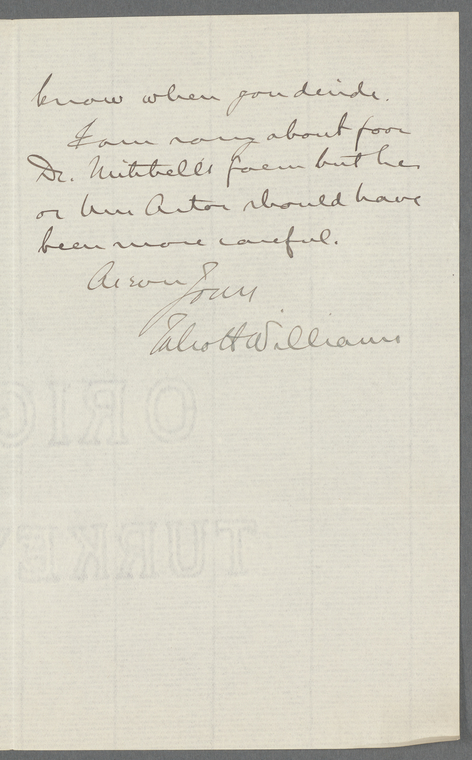 know when you decide.
I am sorry about poor
Dr. Mitchell's poem but he
or Astor should have
been more careful.
Yours
Talcott Williams
ORIG
TURKEY